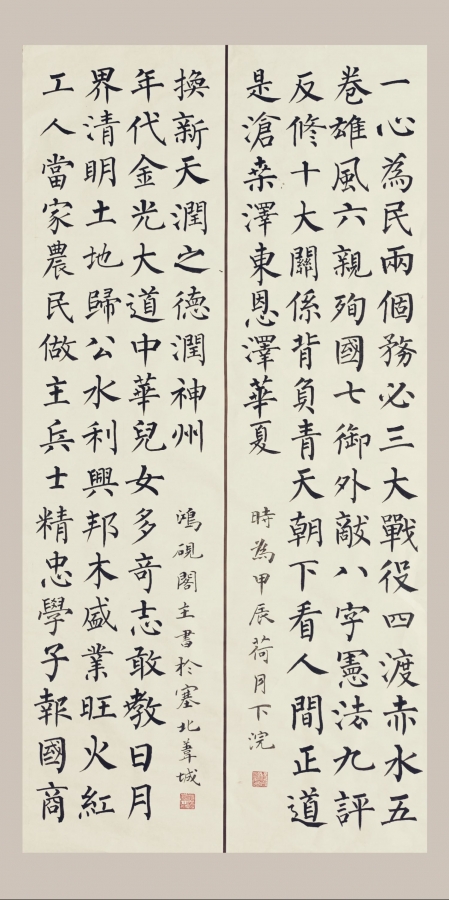 一心為民兩個務必三大戰役四渡赤水五
卷雄風六親殉國七御外敵八字憲法九評
反修十大關係背負青天朝下看人間正道
是滄桒澤東恩澤華夏
時為甲辰荷月下浣
工人當家農民做主兵士精忠學子報國商
界清明土地歸公水利興邦木盛業旺火紅
年代金光大道中華兒女多竒志敢教日月
換新天潤之德潤神州
鴻硯閣主書於塞北葦城